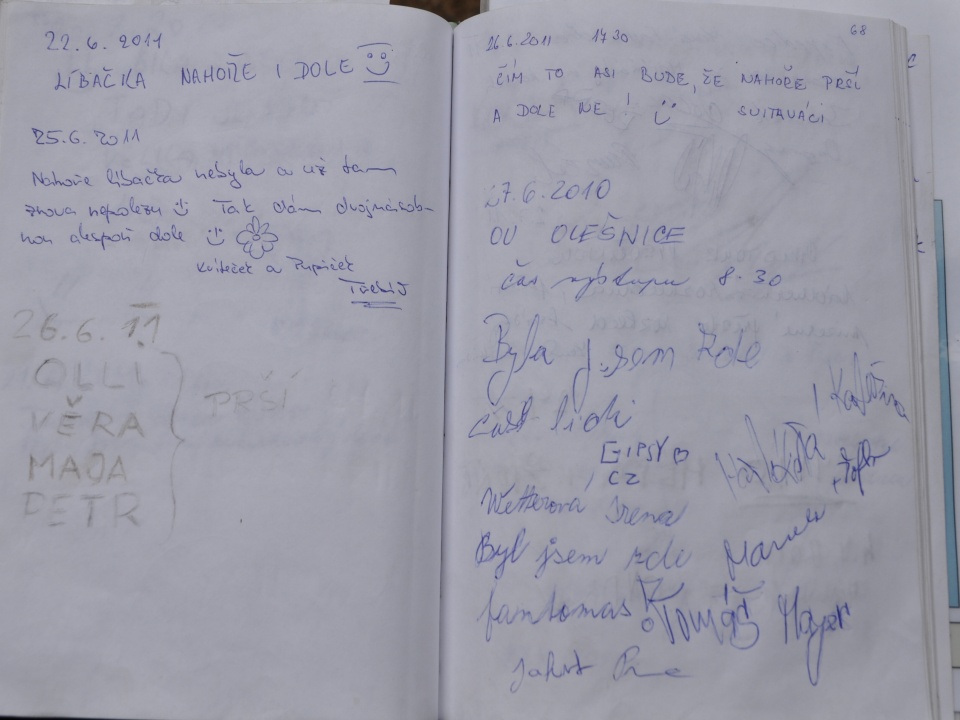 22.6. 2011
LÍBAČKA NAHOŘE I DOLE
25.6. 2011
Nahoře líbačka nebyla a už tam
znova nepolezu Tak dám dvojnásob-
nou alespoň dole
Kvíteček a Pupíček
26.6. 11
OLLI
VĚRA
MAJA
PETR
PRŠÍ
68
26.6.2011 17 30
ČÍM TO ASI BUDE, ŽE NAHOŘE PRŠÍ
A DOLE NE! SVITAVÁCI
27.6.2010
OÚ OLEŠNICE
čas výstupu 8.30
Byla jsem zde
část lidi
GIPSY
CZ
Markéta
Wetterová Irena
Byl jsem zde
fantomas
Tomáš Mayer